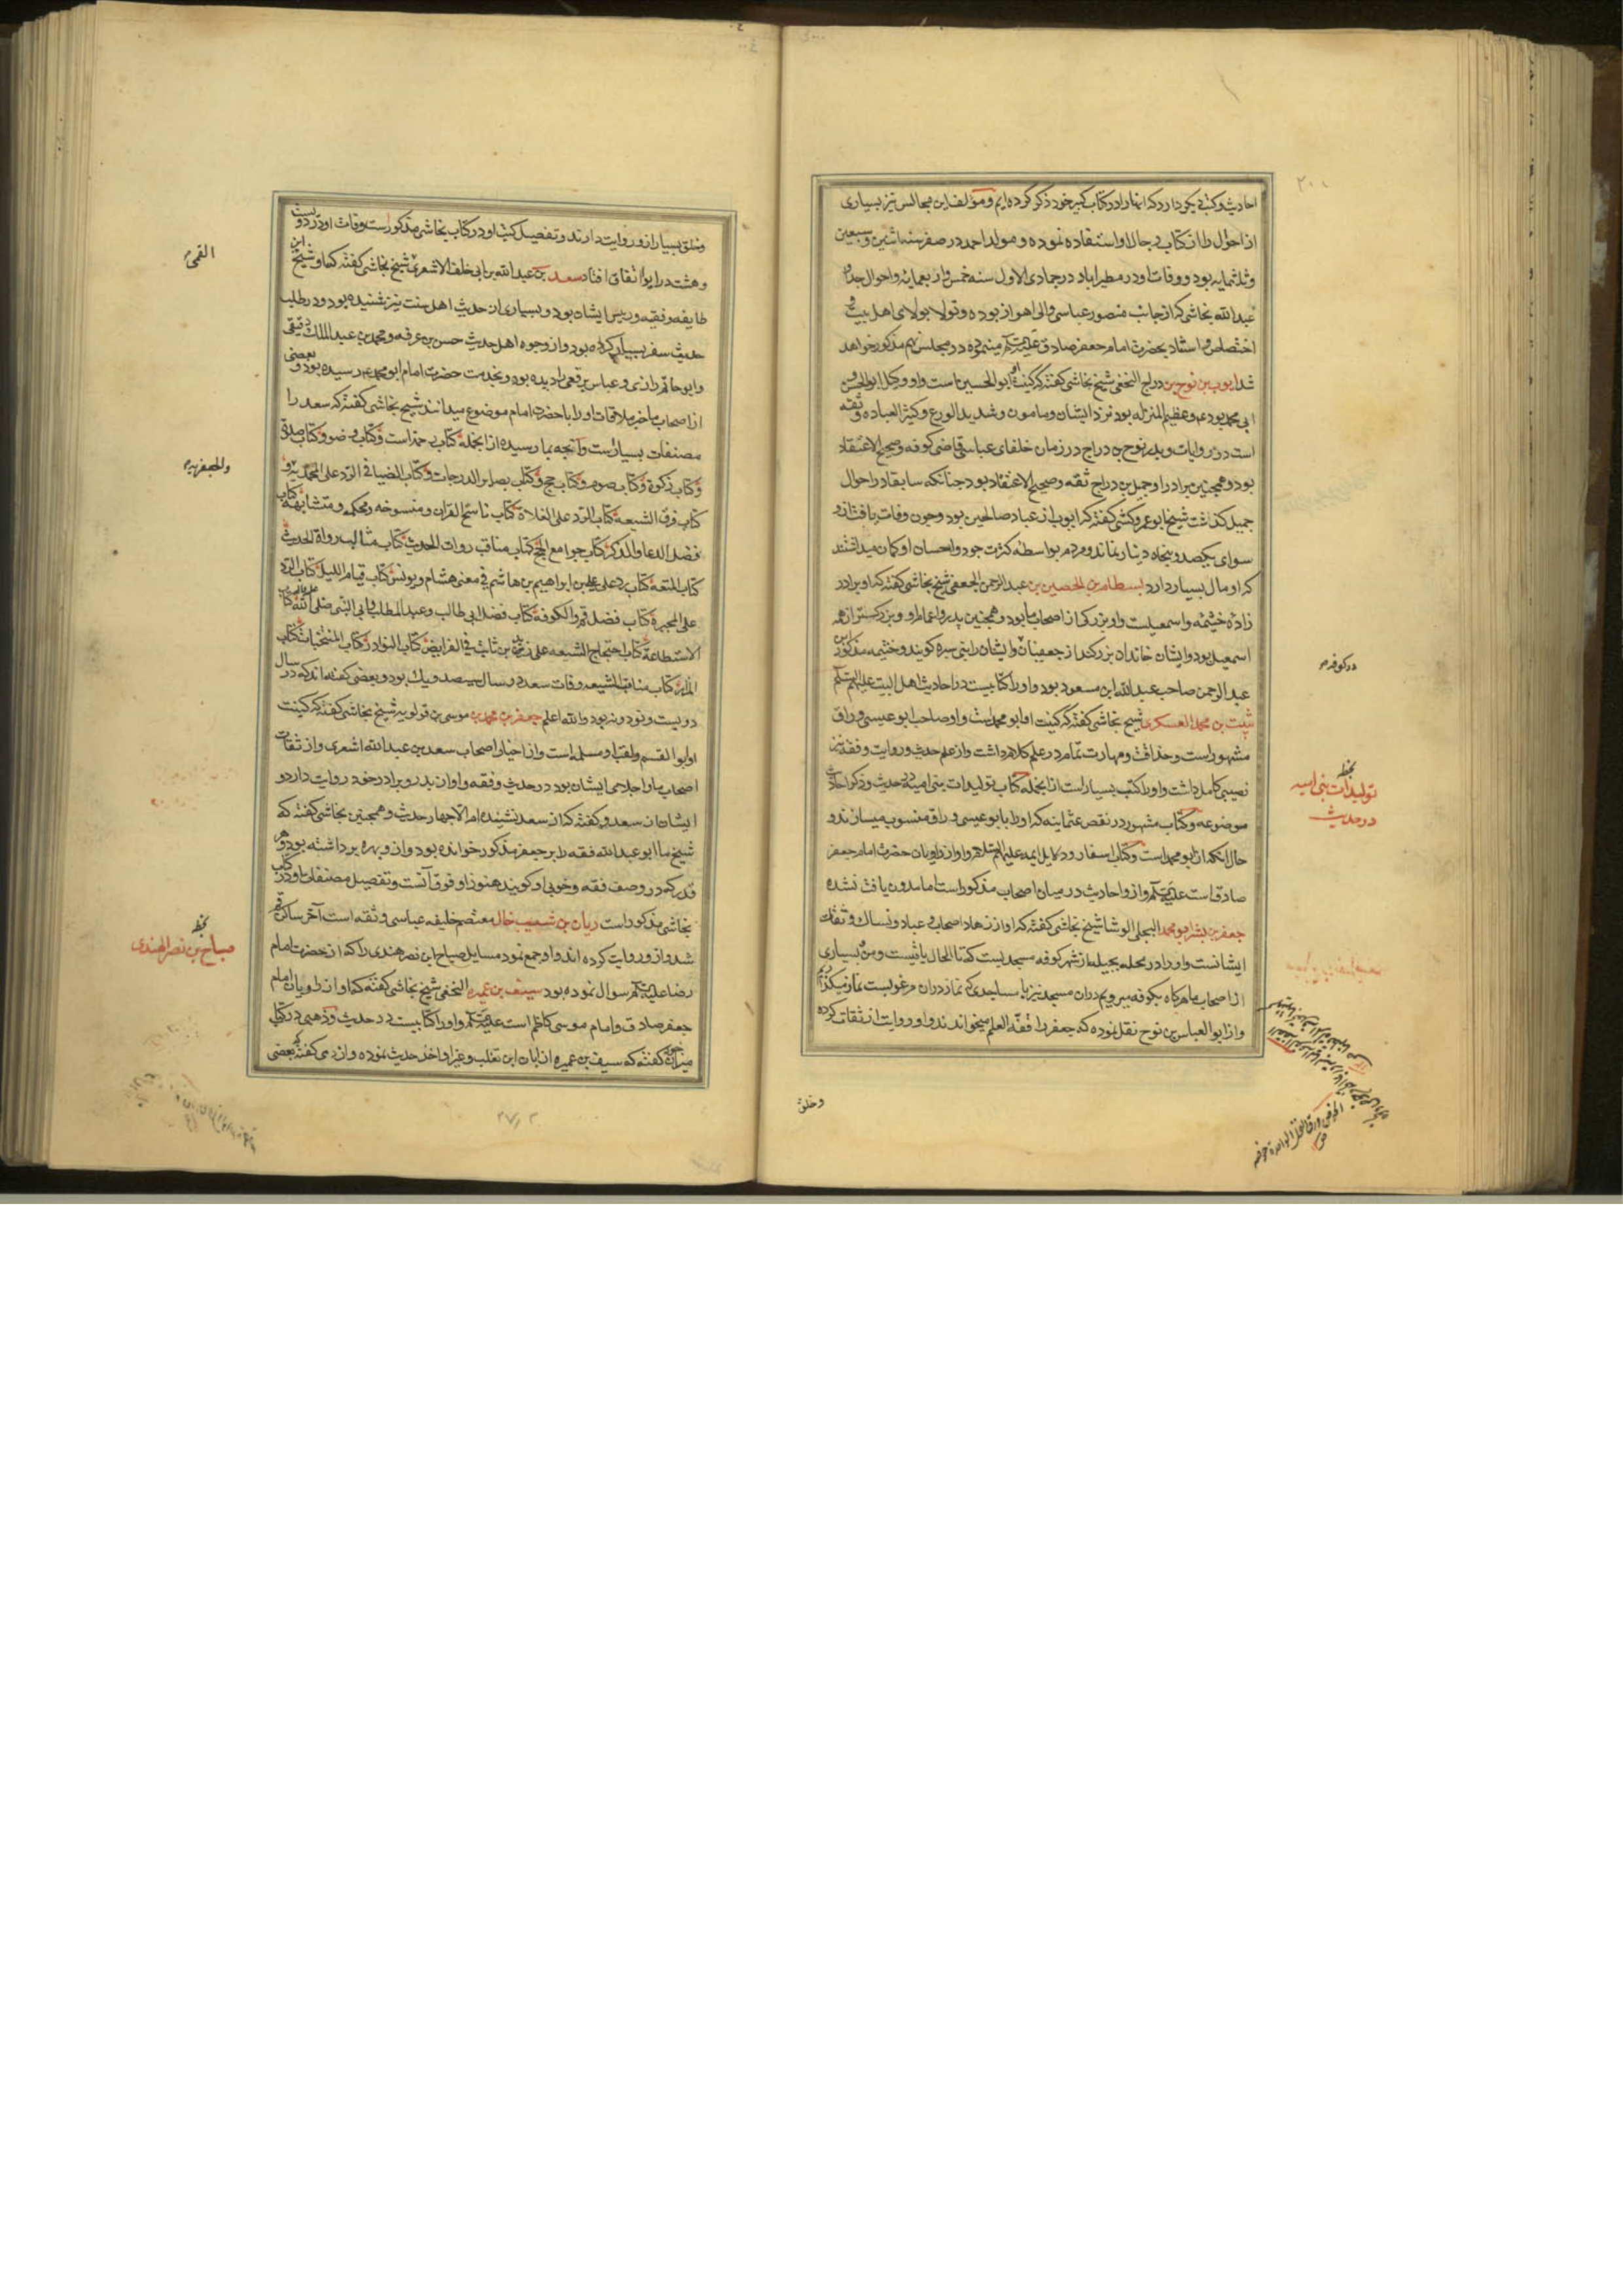 احادیث و کتب دیگر دارد که انها را در کتاب کبیر خود ذکر کرده ایم و مؤلف این مجالس نیز بسیاری
از احوال را از کتاب رجال او استفاده نموده و مولد احمد در صفر سنه اثنین و سبعین
و ثلثمایه بود و وفات او در مطیراباد در جمادی الاول سنه خمس و اربعمایه و احوال جد او
عبدالله نجاشی که از جانب منصور عباسی والی اهواز بوده و تولا بولای اهل بیت و
اختصاص و استناد بحضرت امام جعفر صادق علیه السلم مینموده در مجلس نهم مذکور خواهد
شد ایوب بن نوح بن دراج النخعی شیخ نجاشی گفته که کنیت او ابوالحسین است و او وکیل ابوالحسن و
ابی محمد بود ع و عظیم المنزله بود نزد ایشان و مامون و شدید الورع و کثیر العباده و ثقه
است در روایات و پدر نوح بن دراج در زمان خلفای عباسی قاضی کوفه و صحیح الاعتقاد
بود و همچنین برادر او جمیل بن دراج ثقه و صحیح الاعتقاد بود چنانکه سابقا در احوال
جمیل گذاشت شیخ ابو عمرو کشی گفته که ایوب از عباد صالحین بود و چون وفات یافت از و
سوای یکصد و پنجاه دینار نماند و مردم بواسطه کثرت جود و احسان او گمان میداشتند
که او مال بسیار دارد بسطام بن الحصین بن عبدالرحمن الجعفی شیخ نجاشی گفته که او برادر
زاده خثیمه و اسمعیلست و او بزرگی از اصحاب ما بود و همچنین پدر و اعمام او و بزرگستر از همه
اسمعیل بود و ایشان خانداه بزرگند از جعفیان و ایشان را بنی سبره گویند و خثیمه مذکور
عبدالرحمن صاحب عبدالله ابن مسعود بود و او را کتابیست در احادیث اهل البیت علیهم السلم
ثبیت بن محمد العسکری شیخ نجاشی گفته که کنیت او ابو محمد است و او صاحب ابو عیسی وراق
مشهور است و حذاقت و مهارت تمام در علم کلام داشت و از علم حدیث و روایت و فقه نیز
نصیبی کامل داشت و او را کتب بسیار است از انجمله کتاب تولیدات بنی امیه در حدیث و ذکر احادیث
موضوعه و کتاب مشهور در نقض عثمانیه که او را بابو عیسی وراق منسوب میسازند و
حال انکه از ابو محمد است و کتاب اسفار و دلایل ایمه علیهم السلام و او از راویان حضرت امام جعفر
صادق است علیه السلم و از و احادیث در میان اصحاب مذکور است اما مدون یافت نشده
جعفر بن بشر ابو محمد البجلی الوشا شیخ نجاشی گفته که او از زهاد اصحاب و عباد و نساک و ثقات
ایشانست و او را در محله بجیله از شهر کوفه مسجدیست که تا الحال باقیست و من و بسیاری
از اصحاب ما هر گاه بکوفه میرویم دران مسجد نیز با مساجدی که نماز دران مرغوبست نماز میگذاریم
و از ابوالعباس بن نوح نقل نموده که جعفر را فقه العلم میخواندند و او روایت از ثقات کرده
و خلق
در کوفه
بخطه
تولیدات بنی امیه
در حدیث
و خلق بسیار از و روایت دارند و تفصیل کتب او در کتاب نجاشی مذکور است وفات او در دویست
و هشت در ابوا اتفاق افتاد سعد بن عبدالله بن ابی خلف الاشعری شیخ نجاشی گفته که او شیخ این
طایفه و فقیه و رییس ایشان بود و بسیاری از حدیث اهل سنت نیز شنیده بود و در طلب
حدیث سفر بسیار کرده بود و از وجوه اهل حدیث حسن بن عرفه و محمد بن عبدالملک دقیقی
و ابو حاتم رازی و عباس برقعی را دیده بود و بخدمت حضرت امام ابو محمد ع رسیده بود و بعضی
از اصحاب ما خبر ملاقات او را با حضرت امام موضوع میدانند شیخ نجاشی گفته که سعد را
مصنفات بسیار است و آنچه بما رسیده از انجمله کتاب رحمة است و کتاب وضو و کتاب صلوة
و کتاب زکوة و کتاب صوم و کتاب حج و کتاب بصایر الدرجات و کتاب الضیا فی الرد علی المحمدیه و
کتاب فرق الشیعه کتاب الرد علی الغلاة کتاب ناسخ القران و منسوخه و محکمه و متشابهه کتاب
فضل الدعا و الذکر کتاب جوامع الحج کتاب مناقب روات الحدیث کتاب مثالب رواة الحدیث
کتاب المتعه کتاب رد علی علی بن ابراهیم بن هاشم فی معنی هشام و یونس کتاب قیام اللیل کتاب الرد
علی المجبرة کتاب فضل قم و الکوفه کتاب فضل ابی طالب و عبدالمطلب و ابی النبی صلی الله علیه و اله کتاب
الاستطاعة کتاب احتجاج الشیعه علی زید بن ثابت فی الفرایض کتاب النوادر کتاب المنتخبات کتاب
المزار کتاب مناقب الشیعه وفات سعد در سال سیصد و یک بود و بعضی گفته اند که در سال
دویست و نود و نه بود والله اعلم جعفر بن محمد بن موسی بن قولویه شیخ نجاشی گفته که کنیت
او ابوالقسم و لقب او مسلمه است و از اخیار اصحاب سعد بن عبدالله اشعری و از ثقات
اصحاب ما و اجلای ایشان بود در حدیث و فقه و او از پدر و برادر خود روایت دارد و
ایشان از سعد و گفته که از سعد نشنیده ام الا چهار حدیث و همچنین نجاشی گفته که
شیخ ما ابو عبدالله فقه را بر جعفر مذکور خوانده بود و از و بهره برداشته بود و هر
قدر که در وصف فقه و خوبی او گویند هنوز او فوق آنست و تفصیل مصنفات او در کتاب
نجاشی مذکور است ریان بن شبیب خال معتصم خلیفه عباسی و ثقه است آخر ساکن قم
شد و از و روایت کرده اند و او جمع نمود مسایل صباح ابن نصر هندی را که از حضرت امام
رضا علیه السلم سوال نموده بود سیف بن عمیره النخعی شیخ نجاشی گفته که او از راویان امام
جعفر صادق و امام موسی کاظم است علیه السلم و او را کتابیست در حدیث و ذهبی در کتاب
میزان گفته که سیف بن عمیره از ابان ابن تغلب و غیر او اخذ حدیث نموده و ازدی گفته که بعضی
القمی
والجعفریه
بخطه
صباح بن نصر الهندی